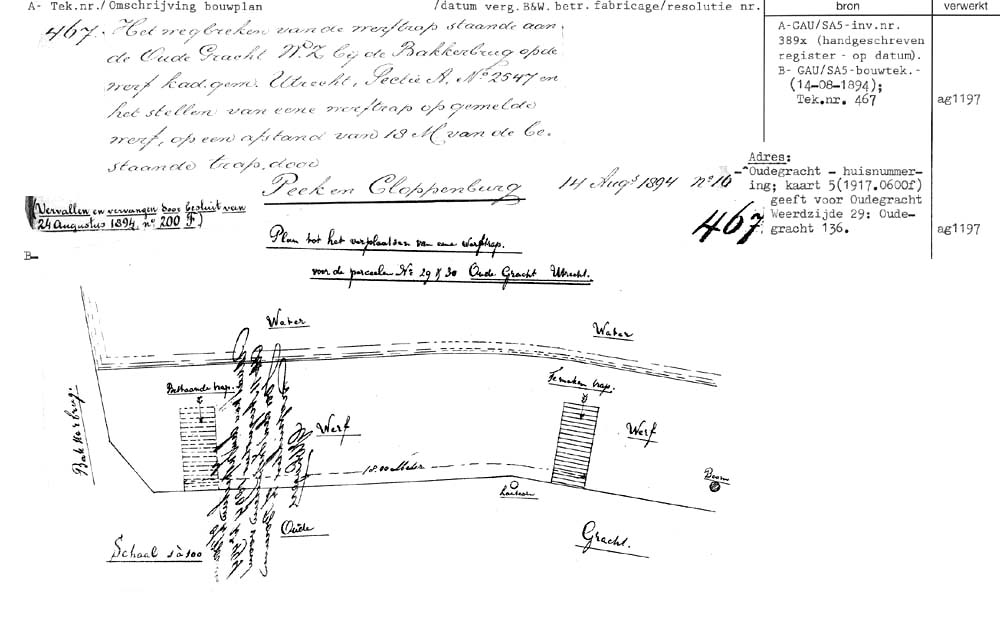 A- Tek.nr./Omschrijving bouwplan /datum verg. B&W. betr. fabricage/resolutie nr. bron verwerkt
467. Het wegbreken van de werftrap staande aan
de Oude Gracht W.Z. bij de Bakkerbrug op de
werf kad. gem. Utrecht, Sectie A. No 2547 en
het stellen van eene werftrap op gemelde
werf, op een afstand van 18 M van de be-
staande trap, door
Peek en Cloppenburg 14 Augs 1894 no 16
A-GAU/SA5-inv.nr.
389x (handgeschreven
register - op datum).
B- GAU/SA5-bouwtek.-
(14-08-1894);
Tek.nr. 467
ag1197
Adres:
Oudegracht - huisnummer-
ing; kaart 5(1917.0600f)
geeft voor Oudegracht
Weerdzijde 29: Oude-
gracht 136.
ag1197
467
(Vervallen en vervangen door besluit van
24 Augustus 1894, no 200 F.)
B-
Plan tot het verplaatsen van eene Werftrap.
voor de perceelen No 29 & 30 Oude Gracht Utrecht.
Water
Water
Bestaande trap.
Te maken trap.
Bakkerbrug.
Werf
Werf
18.00 Meter
Lantaarn
Boom
Oude
Gracht.
Schaal 1 à 100